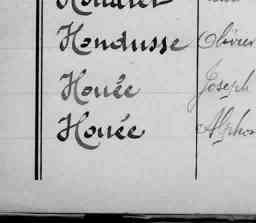 Hondusse Olivier
Houée Joseph
Houée Alphon